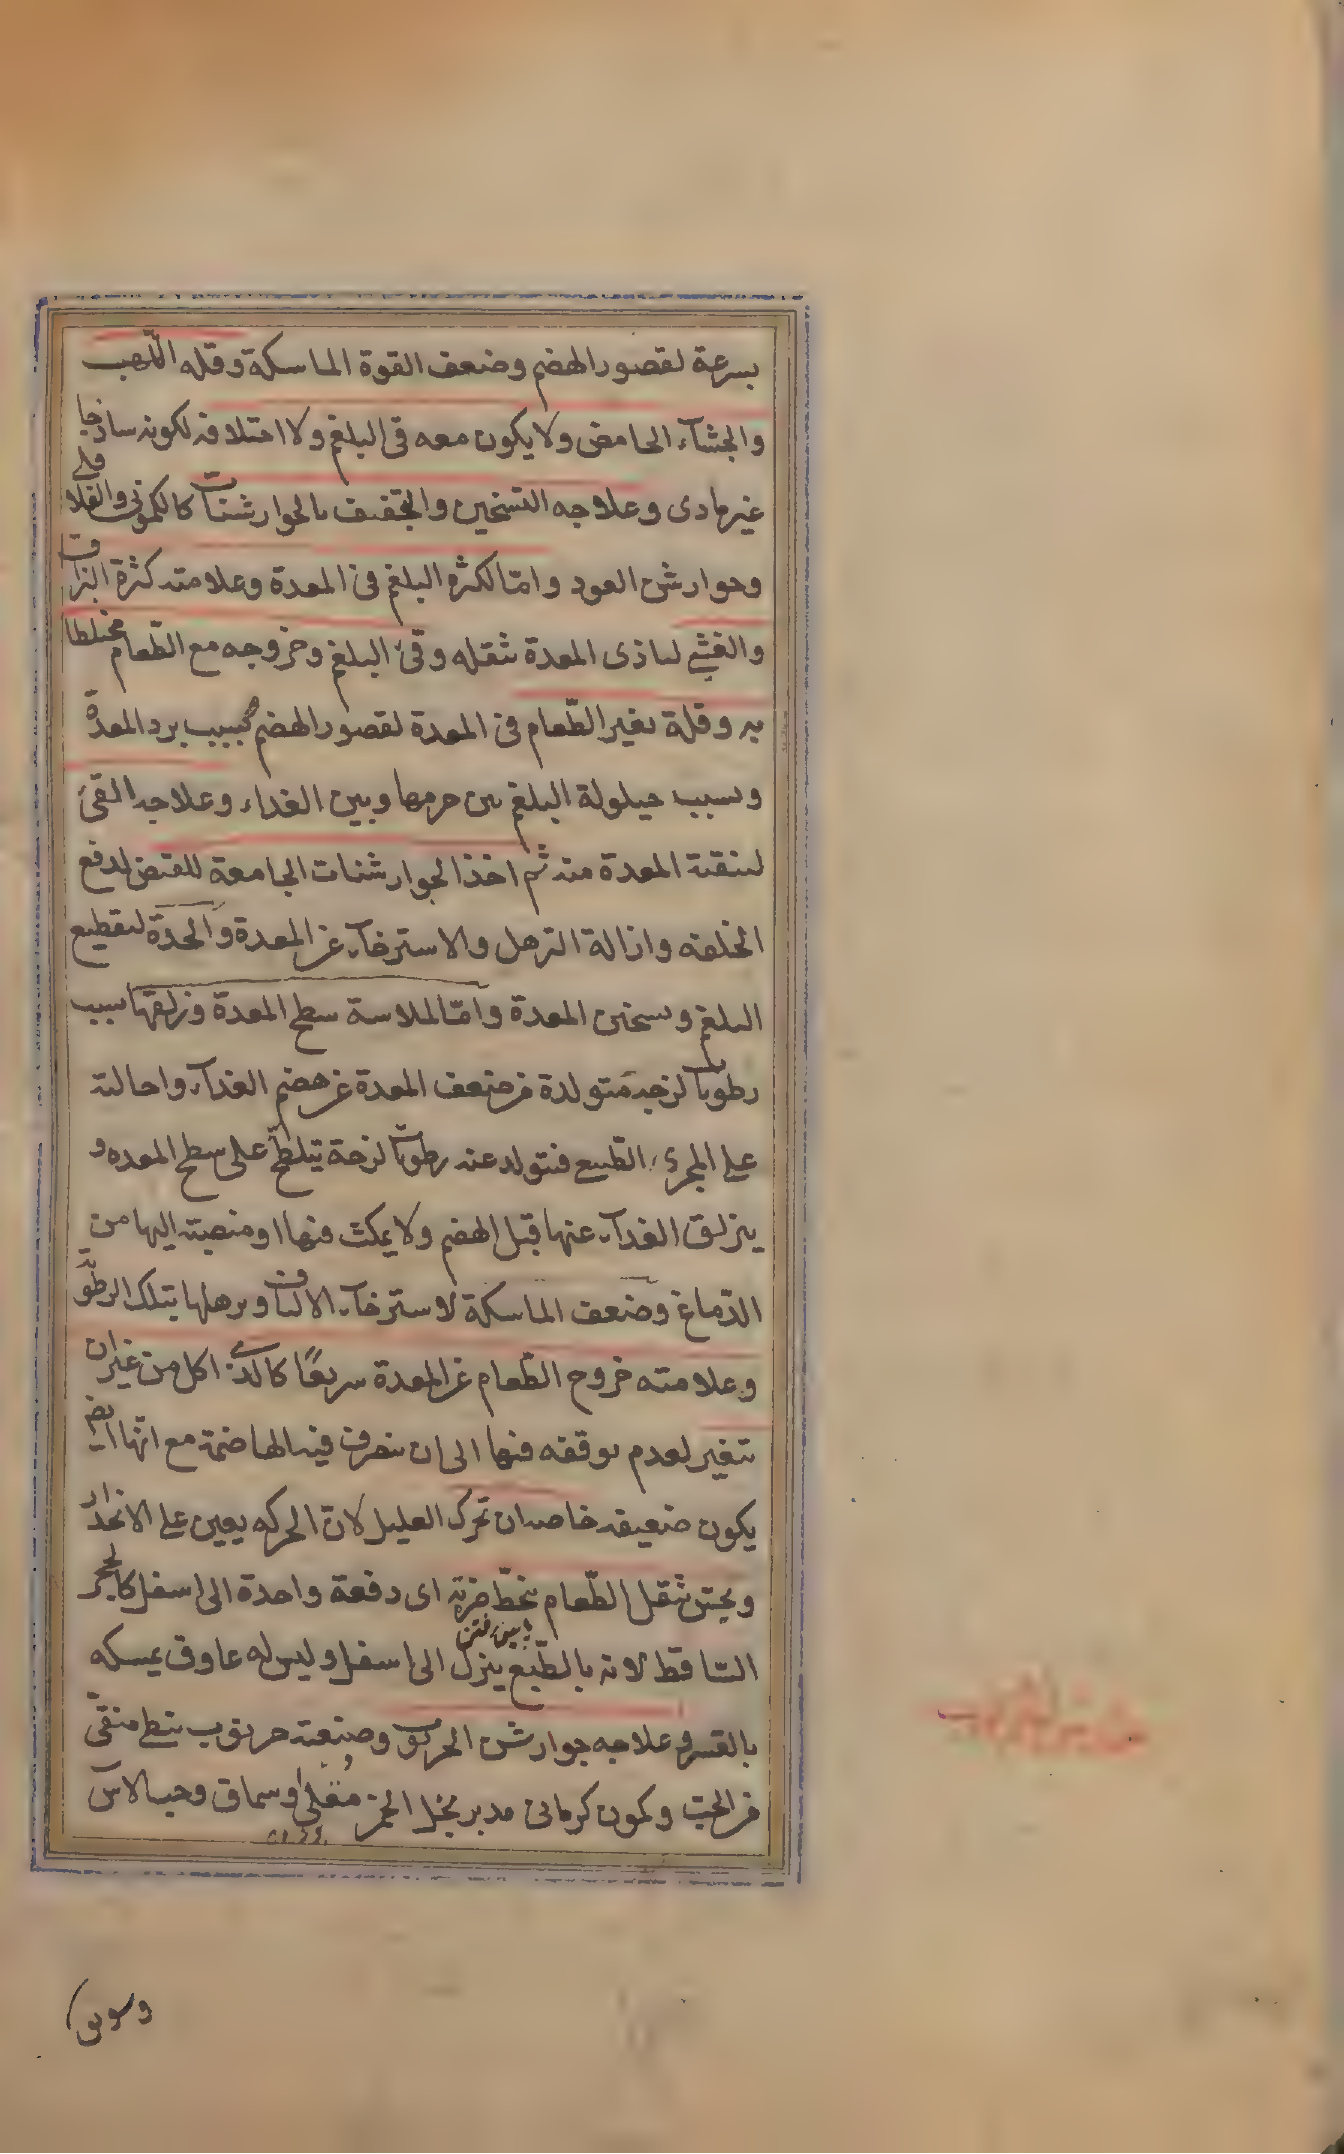 بسرعة لقصور الهضم وضعف القوة الماسكة وقله اللهب
والجشآء الحامض ولا يكون معه قى البلغم ولا اختلافه لكونه ساذجا
غير مادى وعلاجه التسخين والتجفيف بالجوارشنات كالكمونى والفلافلى
وجوارشن العود واما لكثره البلغم فى المعدة وعلامته كثرة البزاق
والغثى لتاذى المعدة بثقله وقئ البلغم وخروجه مع الطعام مختلطا
به وقلة تغير الطعام فى المعدة لقصور الهضم بسبب برد المعدة
وبسبب حيلولة البلغم بين جرمها وبين الغداء وعلاجه القئ
لتنقية المعدة منه ثم اخذ الجوارشنات الجامعة للقبض لدفع
الخلفه وازالة الترهل والاسترخآء عن المعدة والحدة لتقطيع
البلغم وتسخين المعدة واما لملاسة سطح المعدة وزلقها بسبب
رطوبات لزجه متولدة من ضعف المعدة عن هضم الغدآء واحالته
على المجرى الطبيع فتتولد عنه رطوبات لزجة يتلطخ على سطح المعده و
ينزلق الغدآء عنها قبل الهضم ولا يمكث فيها او منصبة اليها من
الدماغ وضعف الماسكة لاسترخآء الالياف وترهلها بتلك الرطوبة
وعلامته خروج الطعام عن المعدة سريعًا كالذى اكل من غير ان
يتغير لعدم توقفه فيها الى ان يتصرف فيه الهاضمة مع انها ايض
يكون ضعيفه خاصه ان تحرك العليل لان الحركه يعين على الانحدار
ويحس بثقل الطعام ينحط ضربة اى دفعة واحدة الى اسفل كالحجر
الساقط لانه بالطبع ينزل الى اسفل وليس له عاوق يمسكه
پايين رفتن
بالقسر وعلاجه جوارشن الخرنوب وصنعته خرنوب نبطى منقى
من الحب وكمون كرمانى مدبر بخل الخمر مقلى وسماق وحب الاس
وسويق